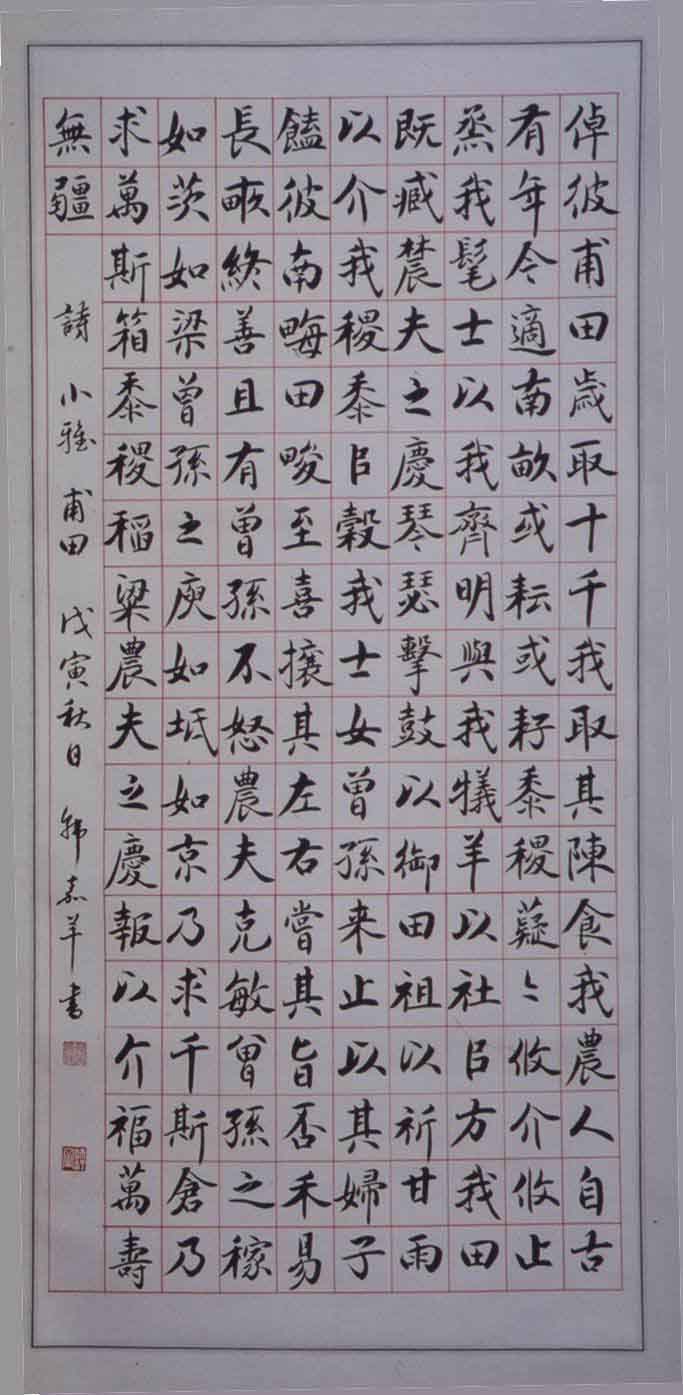 倬彼甫田歲取十千我取其陳食我農人自古
有年今適南畝或耘或耔黍稷薿〻攸介攸止
烝我髦士以我齊明與我犧羊以社㠯方我田
既臧辳夫之慶琴瑟擊鼓以御田祖以祈甘雨
以介我稷黍㠯穀我士女曾孫来止以其婦子
饁彼南畮田畯至喜攘其左右嘗其旨否禾易
長畝終善且有曾孫不怒農夫克敏曾孫之稼
如茨如梁曾孫之庾如坻如京乃求千斯倉乃
求萬斯箱黍稷稻粱農夫之慶報以介福萬壽
無疆
詩 小雅 甫田 戊寅秋日 韩嘉羊书